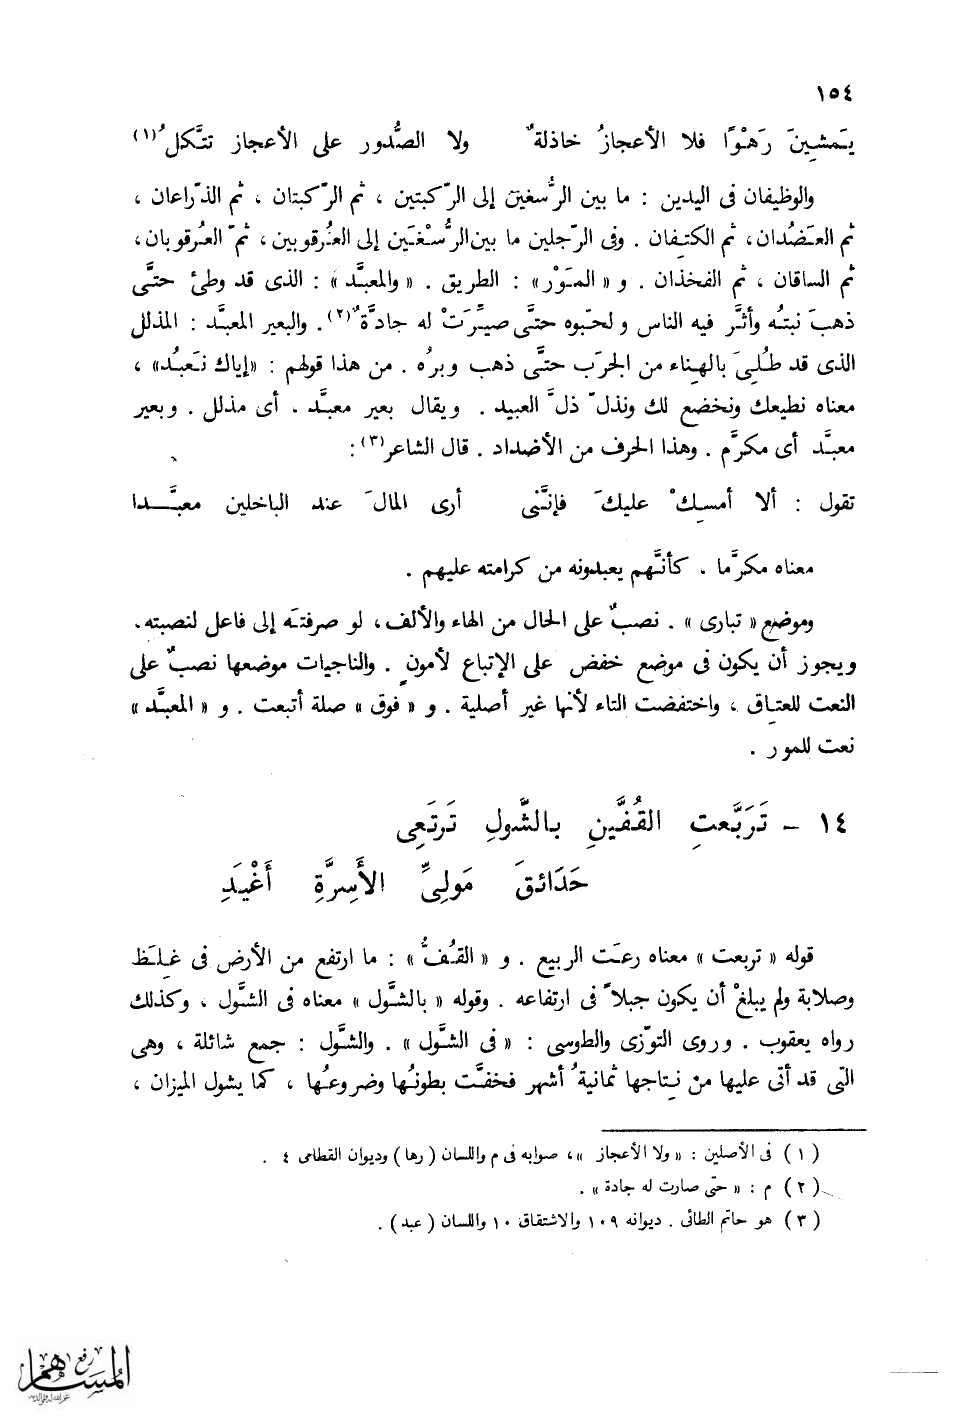 ١٥٤
يَمشِينَ رَهْوًا فلا الأعجازُ خاذلةٌ ولا الصُّدور على الأعجاز تتَّكلُ(١)
والوظيفان فى اليدين : ما بين الرُّسغين إلى الرّكبتين ، ثم الرّكبتان ، ثم الذّراعان ،
ثم العَضُدان، ثم الكتِفان . وفى الرّجلين ما بين الرُّسْغَين إلى العُرقوبين ، ثمّ العُرقوبان،
ثم الساقان ، ثم الفخذان . و « المَوْر » : الطريق . « والمعبَّد » : الذى قد وطئ حتَّى
ذهبَ نبتُه وأثَّر فيه الناس ولحَبوه حتَّى صيِّرَتْ له جادَّةٌ(٢). والبعير المعبَّد : المذلل
الذى قد طُلِىَ بالهِناء من الجرَب حتَّى ذهب وبرُه . من هذا قولهم : «إياك نَعبُد» ،
معناه نطيعك ونخضع لك ونذلّ ذلَّ العبيد . ويقال بعير معبَّد . أى مذلل . وبعير
معبَّد أى مكرَّم . وهذا الحرف من الأضداد . قال الشاعر(٣) :
تقول : ألا أمسِكْ عليكَ فإنَّنى أرى المالَ عند الباخلين معبَّـدا
معناه مكرَّما . كأنَّهم يعبدونه من كرامته عليهم .
وموضع « تبارى » . نصبٌ على الحال من الهاء والألف، لو صرفتَه إلى فاعل لنصبته.
ويجوز أن يكون فى موضع خفض على الإتباع لأمونٍ . والناجيات موضعها نصبٌ على
النعت للعتاق ، واختفضت التاء لأنها غير أصلية . و « فوق » صلة أتبعت . و « المعبَّد »
نعت للمور .
١٤ - تَرَبَّعتِ القُفَّينِ بالشَّولِ تَرتَعِى
حَدَائقَ مَولِىِّ الأَسِرَّةِ أَغْيَدِ
قوله « تربعت » معناه رعَت الربيع . و « القُفُّ » : ما ارتفع من الأرض فى غِلَظ
وصلابة ولم يبلغْ أن يكون جبلاً فى ارتفاعه . وقوله « بالشَّول » معناه فى الشَّول ، وكذلك
رواه يعقوب . وروى التوّزى والطوسى : « فى الشَّول » . والشَّول : جمع شائلة ، وهى
التى قد أتى عليها من نِتاجها ثمانيةُ أشهر فخفَّت بطونُها وضروعُها ، كما يشول الميزان ،
(١) فى الأصلين : « ولا الأعجاز »، صوابه فى م واللسان ( رها ) وديوان القطامى ٤ .
(٢) م : « حتى صارت له جادة » .
(٣) هو حاتم الطائى . ديوانه ١٠٩ والاشتقاق ١٠ واللسان ( عبد ) .
رفع
المساهم